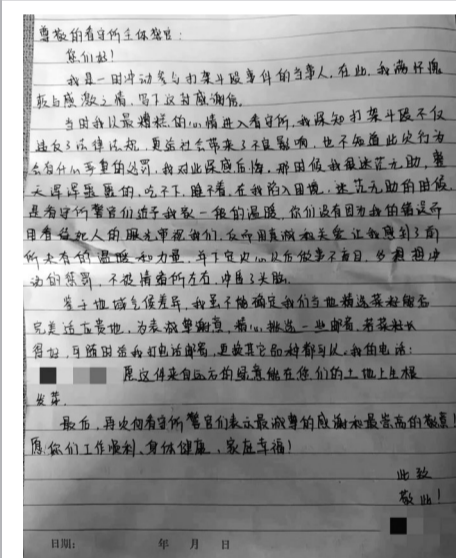 尊敬的看守所全体警官：
您们好！
我是一时冲动参与打架斗殴事件的当事人，在此，我满怀愧
疚与感激之情，写下这封感谢信。
当时我以最糟糕的心情进入看守所，我深知打架斗殴不仅
违反了法律法规，更给社会带来了不良影响，也不知道此次行为
会有什么严重的惩罚，我对此深感后悔，那时候我很迷茫无助，整
天浑浑噩噩的，吃不下，睡不着，在我陷入困境，迷茫无助的时候
是看守所警官们给予我家一般的温暖，你们没有因为我的错误而
用看待犯人的眼光审视我们，反而用真诚和关爱让我感到了前
所未有的温暖和力量，并下定决心以后做事不盲目，多想想冲
动的惩罚，不被情绪所左右，冲昏了头脑。
鉴于地域气候差异，我虽不能确定我们当地精选菜籽能否
完美适应贵地，为表诚挚谢意，精心挑选一些邮寄，若菜籽长
得好，可随时给我打电话邮寄，更换其它品种都可以，我的电话：
愿这件来自远方的心意能在您们的土地上生根
发芽。
最后，再次向看守所警官们表示最诚挚的感谢和最崇高的敬意！
愿你们工作顺利、身体健康、家庭幸福！
此致
敬礼！
日期： 年 月 日